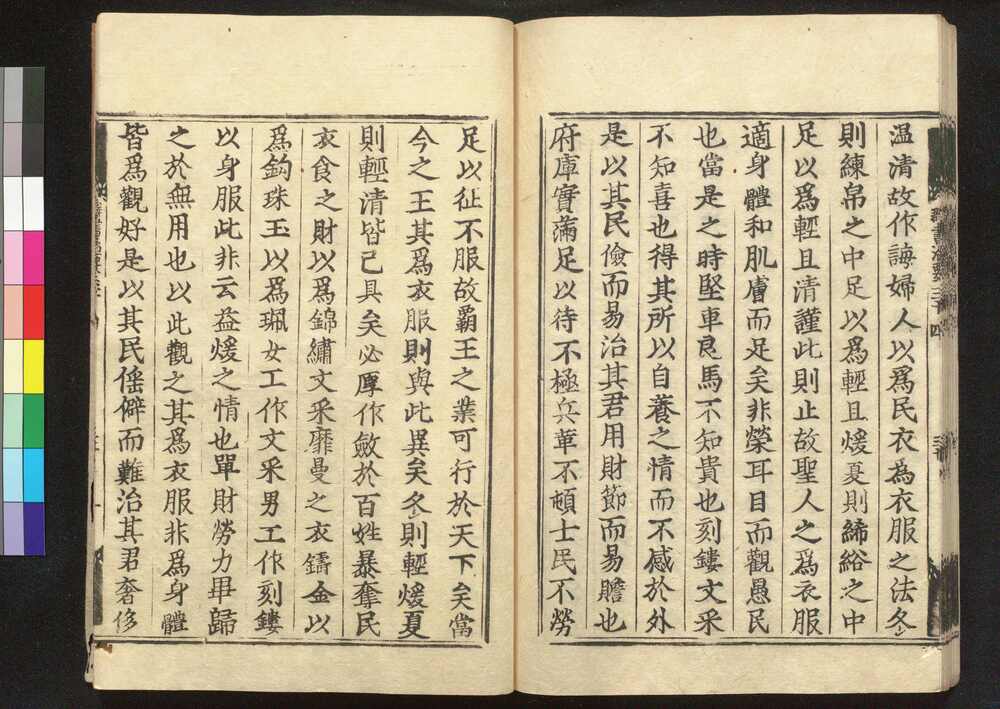 温清故作誨婦人以爲民衣為衣服之法冬
則練帛之中足以爲輕且煖夏則絺綌之中
足以爲輕且清謹此則止故聖人之爲衣服
適身體和肌膚而足矣非榮耳目而觀愚民
也當是之時堅車良馬不知貴也刻鏤文采
不知喜也得其所以自養之情而不感於外
是以其民儉而易治其君用財節而易贍也
府庫實滿足以待不極兵革不頓士民不勞
足以征不服故霸王之業可行於天下矣當
今之王其爲衣服則與此異矣冬則輕煖夏
則輕清皆已具矣必厚作斂於百姓暴奪民
衣食之財以爲錦繡文采靡曼之衣鑄金以
爲鈎珠玉以爲珮女工作文采男工作刻鏤
以身服此非云益煖之情也單財勞力畢歸
之於無用也以此觀之其爲衣服非爲身體
皆爲觀好是以其民傜僻而難治其君奢侈